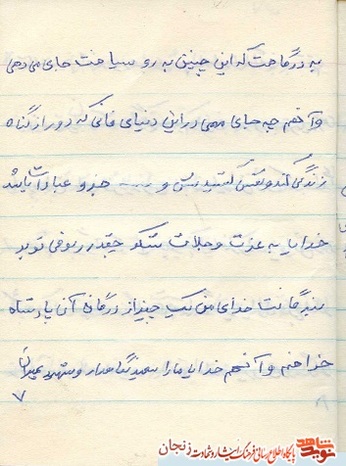 به درگاهت که این چنین به رو سیاهت جای می دهی
و آنهم چه جای مهمی در این دنیای فانی که دور از گناه
زندگی کند و نفس کشیدنش و همه جزو عبادات باشد
خدایا به عزت و جلالت شکر چقدر رئوفی تو به
بندگانت خدای من یک چیز از درگاه آن پادشاه
خواهم و آنهم خدایا مارا سعید نگاهدار و شهید بمیران
۷
نوید شاهد
پایگاه اطلاع رسانی فرهنگ ایثار و شهادت زنجان